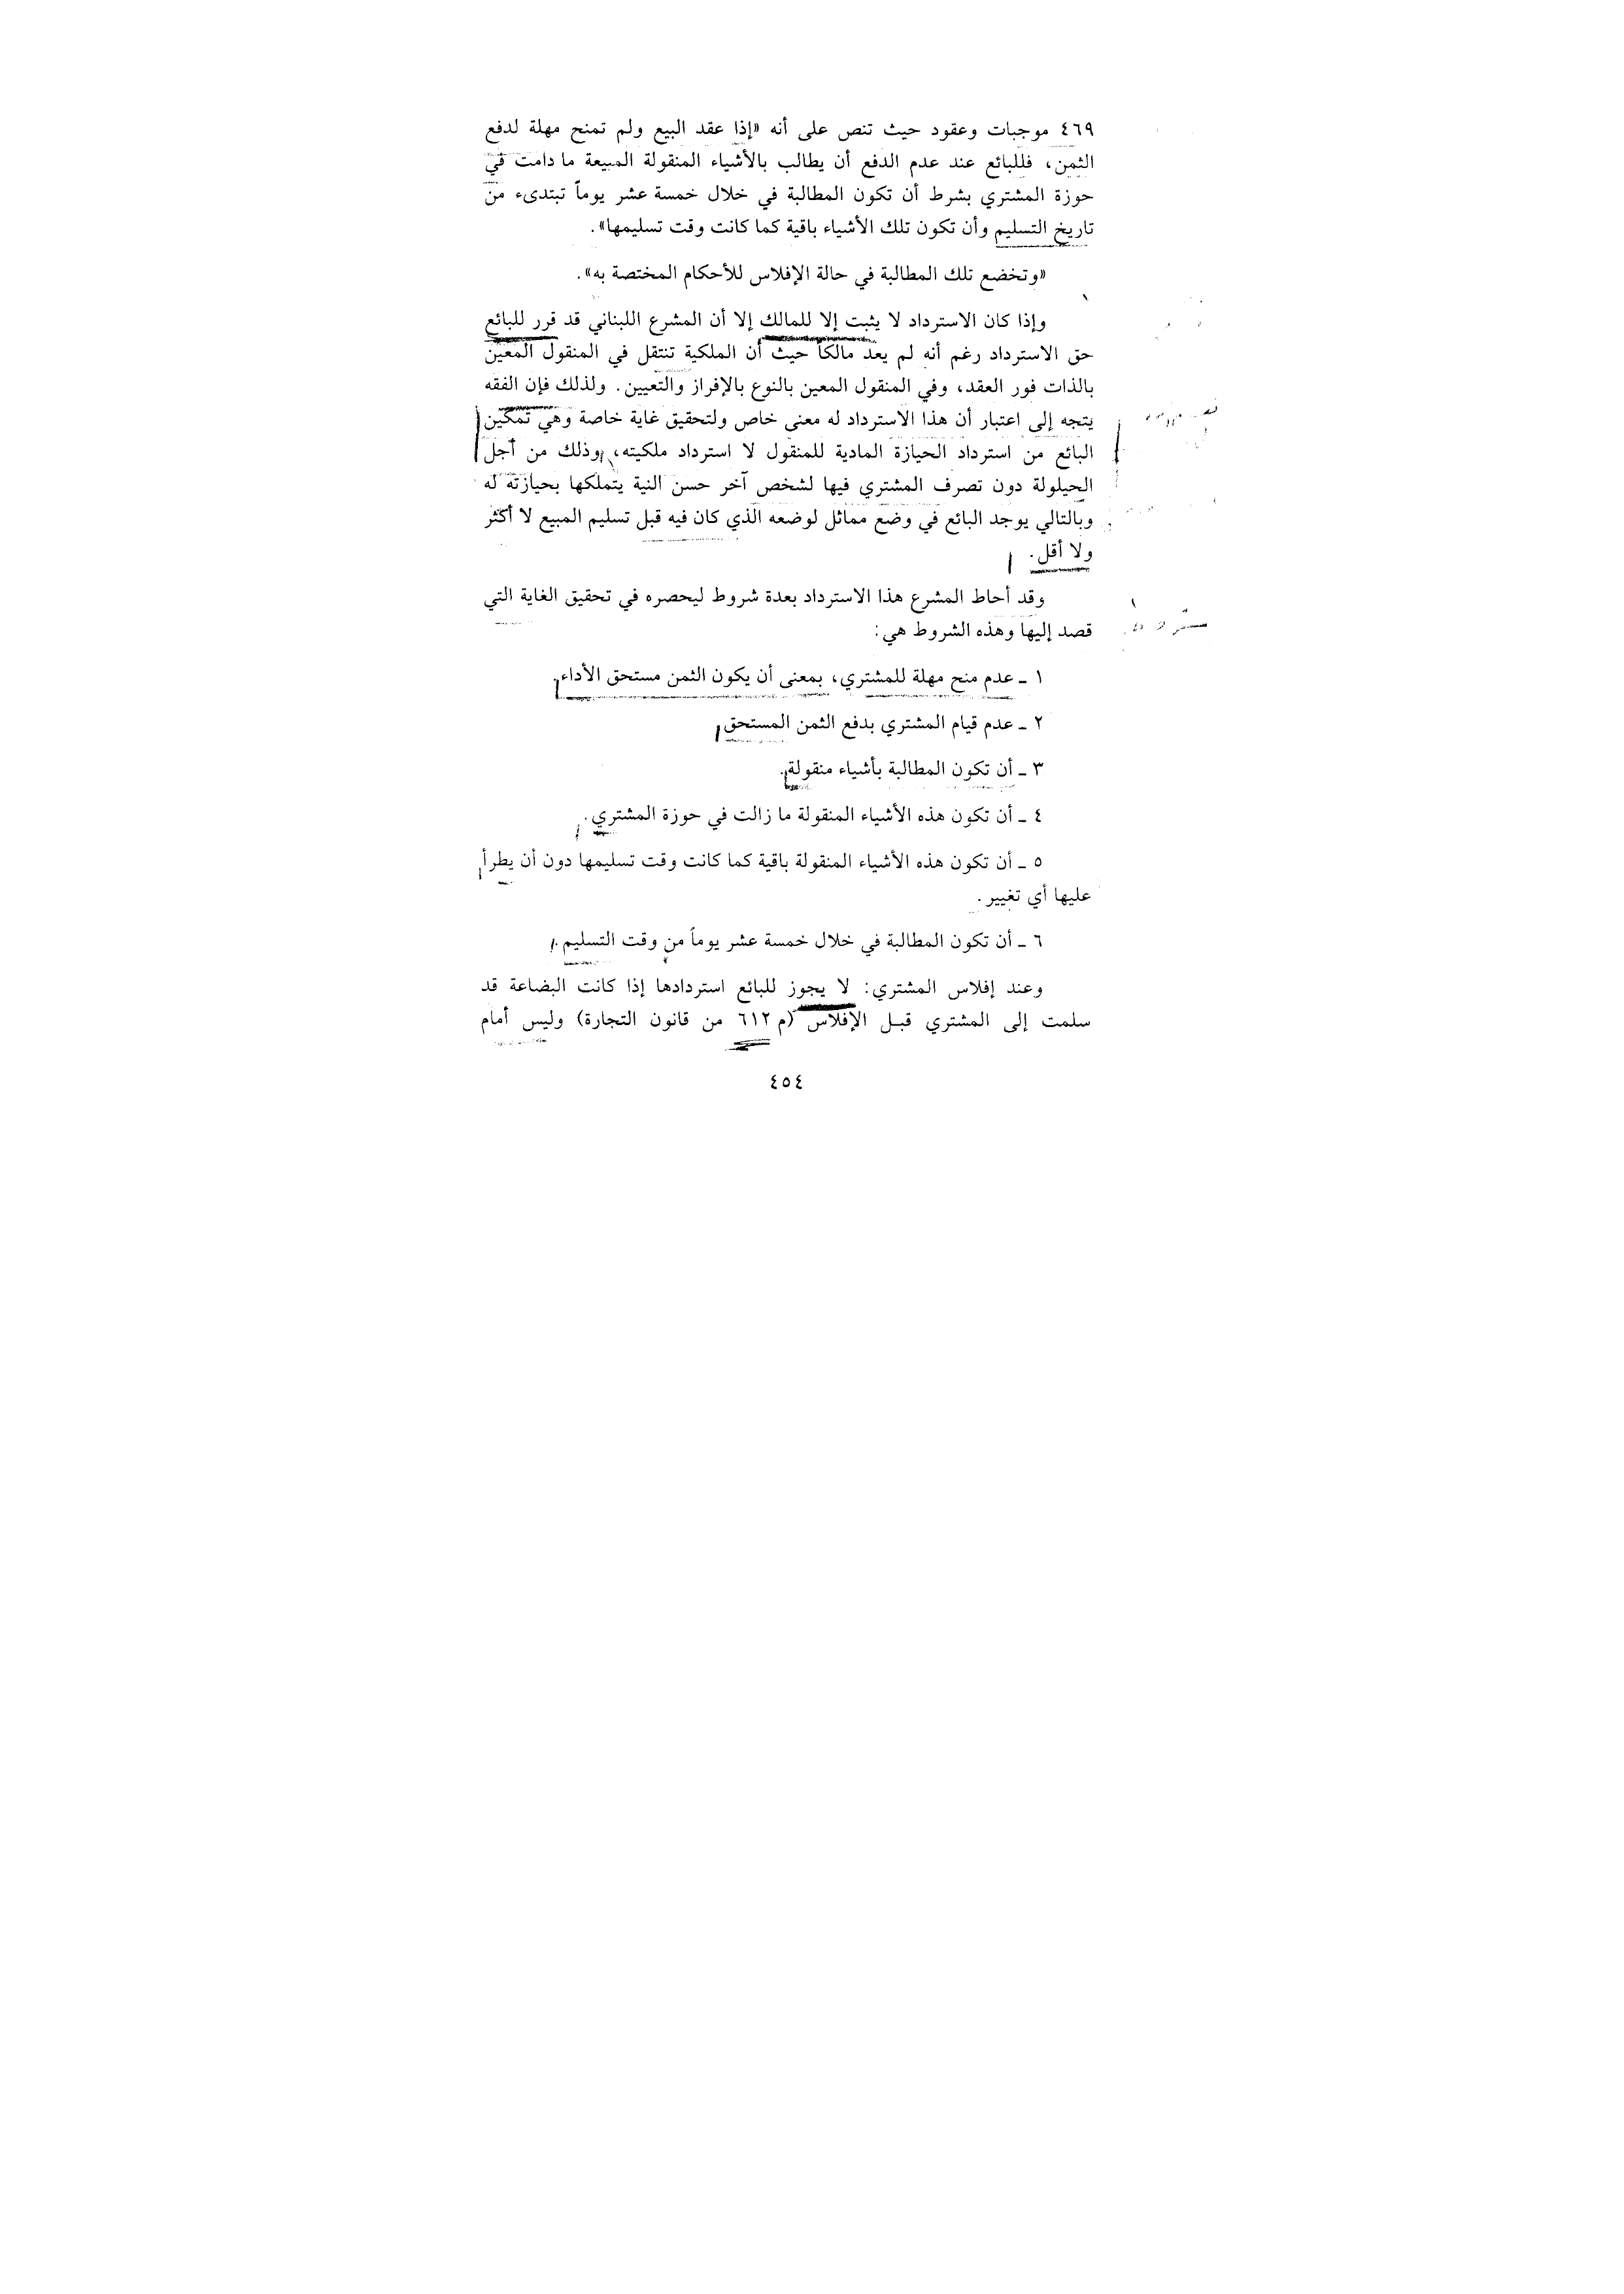 ٤٦٩ موجبات وعقود حيث تنص على أنه «إذا عقد البيع ولم تمنح مهلة لدفع
الثمن، فللبائع عند عدم الدفع أن يطالب بالأشياء المنقولة المبيعة ما دامت في
حوزة المشتري بشرط أن تكون المطالبة في خلال خمسة عشر يوماً تبتدىء من
تاريخ التسليم وأن تكون تلك الأشياء باقية كما كانت وقت تسليمها».
«وتخضع تلك المطالبة في حالة الإفلاس للأحكام المختصة به».
وإذا كان الاسترداد لا يثبت إلا للمالك إلا أن المشرع اللبناني قد قرر للبائع
حق الاسترداد رغم أنه لم يعد مالكاً حيث أن الملكية تنتقل في المنقول المعين
بالذات فور العقد، وفي المنقول المعين بالنوع بالإفراز والتعيين. ولذلك فإن الفقه
يتجه إلى اعتبار أن هذا الاسترداد له معنى خاص ولتحقيق غاية خاصة وهي تمكين
البائع من استرداد الحيازة المادية للمنقول لا استرداد ملكيته، وذلك من أجل
الحيلولة دون تصرف المشتري فيها لشخص آخر حسن النية يتملكها بحيازته له
وبالتالي يوجد البائع في وضع مماثل لوضعه الذي كان فيه قبل تسليم المبيع لا أكثر
ولا أقل.
وقد أحاط المشرع هذا الاسترداد بعدة شروط ليحصره في تحقيق الغاية التي
قصد إليها وهذه الشروط هي:
١ ـ عدم منح مهلة للمشتري، بمعنى أن يكون الثمن مستحق الأداء.
٢ ـ عدم قيام المشتري بدفع الثمن المستحق
٣ ـ أن تكون المطالبة بأشياء منقولة.
٤ ـ أن تكون هذه الأشياء المنقولة ما زالت في حوزة المشتري.
٥ ـ أن تكون هذه الأشياء المنقولة باقية كما كانت وقت تسليمها دون أن يطرأ
عليها أي تغيير.
٦ ـ أن تكون المطالبة في خلال خمسة عشر يوماً من وقت التسليم.
وعند إفلاس المشتري: لا يجوز للبائع استردادها إذا كانت البضاعة قد
سلمت إلى المشتري قبل الإفلاس (م ٦١٢ من قانون التجارة) وليس أمام
٤٥٤